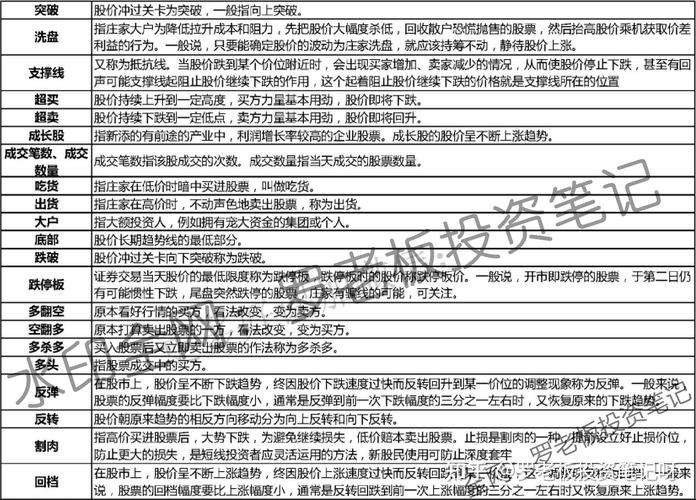 突破 股价冲过关卡为突破，一般指向上突破。
洗盘 指庄家大户为降低拉升成本和阻力，先把股价大幅度杀低，回收散户恐慌抛售的股票，然后抬高股价乘机获取价差
利益的行为。一般说，只要能确定股价的波动为庄家洗盘，就应该持筹不动，静待股价上涨。
支撑线 又称为抵抗线。当股价跌到某个价位附近时，会出现买家增加、卖家减少的情况，从而使股价停止下跌，甚至有回
声可能支撑线起阻止股价继续下跌的作用，这个起着阻止股价继续下跌的价格就是支撑线所在的位置
超买 股价持续上升到一定高度，买方力量基本用劲，股价即将下跌。
超卖 股价持续下跌到一定低点，卖方力量基本用劲，股价即将回升。
成长股 指新添的有前途的产业中，利润增长率较高的企业股票。成长股的股价呈不断上涨趋势。
成交笔数、成交
数量 成交笔数指该股成交的次数。成交数量指当天成交的股票数量。
吃货 指庄家在低价时暗中买进股票，叫做吃货。
出货 指庄家在高价时，不动声色地卖出股票，称为出货。
大户 指大额投资人，例如拥有庞大资金的集团或个人。
底部 股价长期趋势线的最低部分。
跌破 股价冲过关卡向下突破称为跌破。
跌停板 证券交易当天股价的最低限度称为跌停板，跌停板时的股价称跌停板价。一般说，开市即跌停的股票，于第二日仍
有可能惯性下跌，尾盘突然跌停的股票，庄家有骗线的可能，可关注。
多翻空 原本看好行情的买方，看法改变，变为卖方。
空翻多 原本打算卖出股票的一方，看法改变，变为买方。
多杀多 买入股票后又立即卖出股票的作法称为多杀多。
多头 指股票成交中的买方。
反弹 在股市上，股价呈不断下跌趋势，终因股价下跌速度过快而反转回升到某一价位的调整现象称为反弹。一般来说，
股票的反弹幅度要比下跌幅度小，通常是反弹到前一次下跌幅度的三分之一左右时，又恢复原来的下跌趋势。
反转 股价朝原来趋势的相反方向移动分为向上反转和向下反转。
割肉 指高价买进股票后，大势下跌，为避免继续损失，低价赔本卖出股票。止损是割肉的一种，提前设立好止损价位，
防止更大的损失，是短线投资者应灵活运用的方法，新股民使用可防止深度套牢
回档 在股市上，股价呈不断上涨趋势，终因股价上涨速度过快而反转回跌到某一
说，股票的回档幅度要比上涨幅度小，通常是反转回跌到前一次上涨幅度的三分之一左右时又恢复原来上涨趋势。
水印全网：罗老板投资笔记
全网：罗老板投资笔记
知乎 @罗老板投资笔记呀